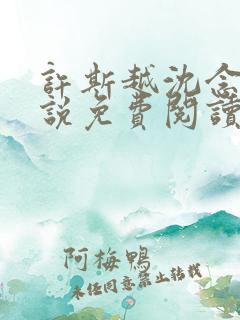 許斯越沈念
說免費閱讀
阿梅鴨
未经同意禁止转载